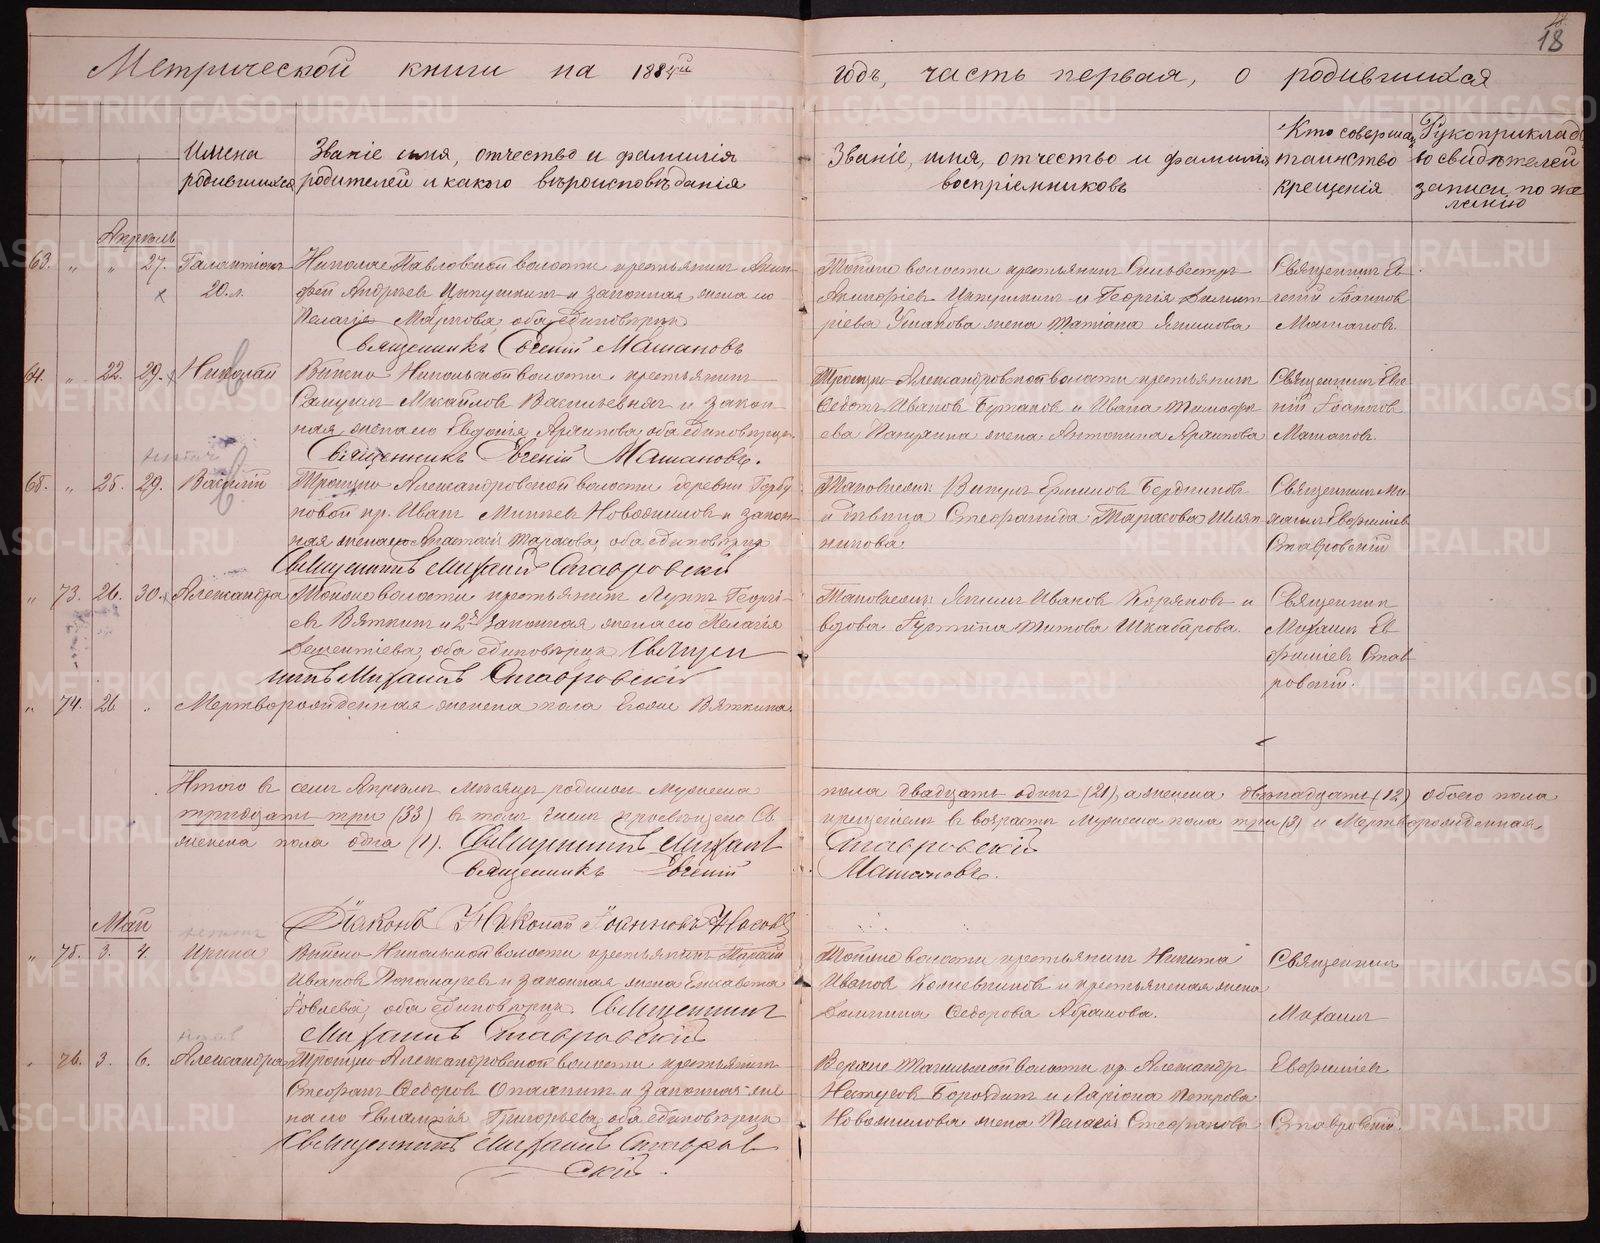 18
Метрической книги на 188 годъ, часть первая, о родившихся
Имена родившихся
Званіе имя, отчество и фамилія
родителей и какого вѣроисповѣданія
Званіе, имя, отчество и фамилія
воспріемниковъ
Кто соверша
таинство
крещенія
Рукоприкладс
во свидѣтелей
записи по же
ланію
Апрѣль
63. " " 27. Галактіонъ
20. л.
Николае Павловской волости крестьянинъ Акин-
фей Андреевъ Цыпушкинъ и законная жена его
Пелагія Маркова, оба единовѣрцы
Священникъ Евгеній Машановъ
Тойже волости крестьянинъ Сильвестръ
Акинфіевъ Цыпушкинъ и Георгія Димит
ріева Ушакова жена Татіана Якимова
Священникъ Ев
геній Іоанновъ
Машановъ
64. " 22. 29. Николай
Выйско Никольской волости крестьянинъ
Михайловъ Васильевыхъ и закон
ная жена его Евдокія Архипова, оба единовѣрцы.
Священникъ Евгеній Машановъ.
Троицко Александровской волости крестьянинъ
Федотъ Ивановъ и Ивана Тимофе
ева жена Антонина Архипова
Священникъ Евге
ній Іоанновъ
Машановъ.
65. " 25. 29. Василій
Троицко Александровской волости деревни Горбу
новой кр. Иванъ Новожиловъ и закон-
ная жена его Анастасія Тарасова, оба единовѣрцы
Священникъ Михаилъ Ставровскій
Таковыежъ: Викулъ Ермиловъ Бердниковъ
и дѣвица Стефанида Тарасова Шляп
никова.
Священникъ Ми
хаилъ Евфиміевъ
Ставровскій
" 73. 26. 30. Александра
Тойже волости крестьянинъ Луппъ Георгі-
евъ Вяткинъ и 2я законная жена его Пелагія
оба единовѣрцы Священ
никъ Михаилъ Ставровскій
Таковыежъ: Якимъ Ивановъ Коряковъ и
вдова Густина Титова Шкабарова.
Священникъ
Михаилъ Ев
фиміевъ Став
ровскій.
" 74. 26 " Мертворожденная женска пола Вяткина.
Итого въ семъ Апрѣлѣ мѣсяцѣ родилось Мужеска пола двадцать одинъ (21), а женска двѣнадцать (12) обоего пола
тридцать три (33) въ томъ числѣ просвѣщено Св. крещеніемъ въ возрастѣ Мужеска пола три (3) и Мертворожденная
женска пола одна (1). Священникъ Михаилъ Ставровскій
Священникъ Евгеній Машановъ.
Діаконъ Николай Іоанновъ Носовъ
Май
" 75. 3. 4. Ирина
Выйско Никольской волости крестьянинъ
Ивановъ Пономаревъ и законная жена Елисавета
Іовлева, оба единовѣрцы Священникъ
Михаилъ Ставровскій
Тойже волости крестьянинъ Никита
Ивановъ Кожевниковъ и крестьянская жена
Домнина Федорова Абрамова.
Священникъ
Михаилъ
" 76. 3. 6. Александра
Троицко Александровской волости крестьянинъ
Стефанъ Федоровъ и законная же
на его Евлампія Григорьева, оба единовѣрцы
Священникъ Михаилъ Ставров
скій.
Верхне Тагильской волости кр. Александръ
Бородинъ и Ларіона Петрова
Новожилова жена Пелагія Стефанова
Евфиміевъ
Ставровскій.
METRIKI.GASO-URAL.RU